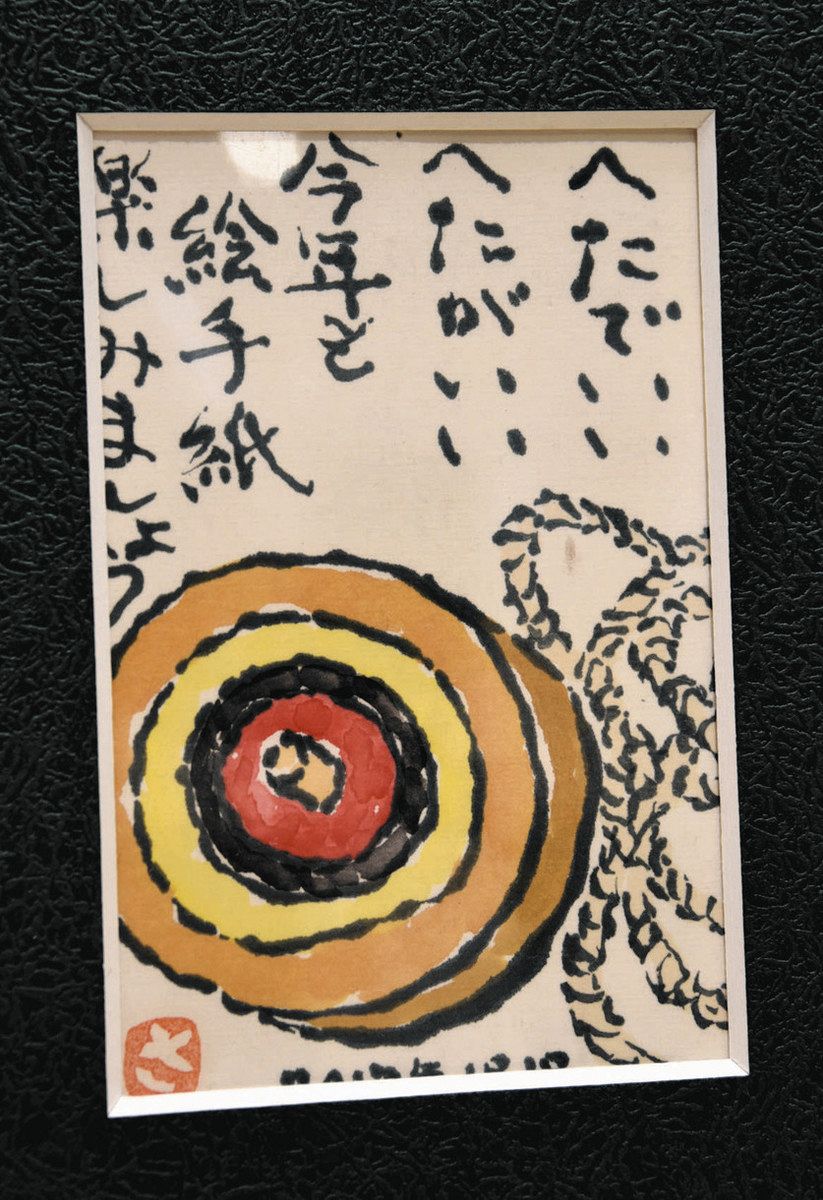 へたでいい
へたがいい
今年も
絵手紙
楽しみましょう